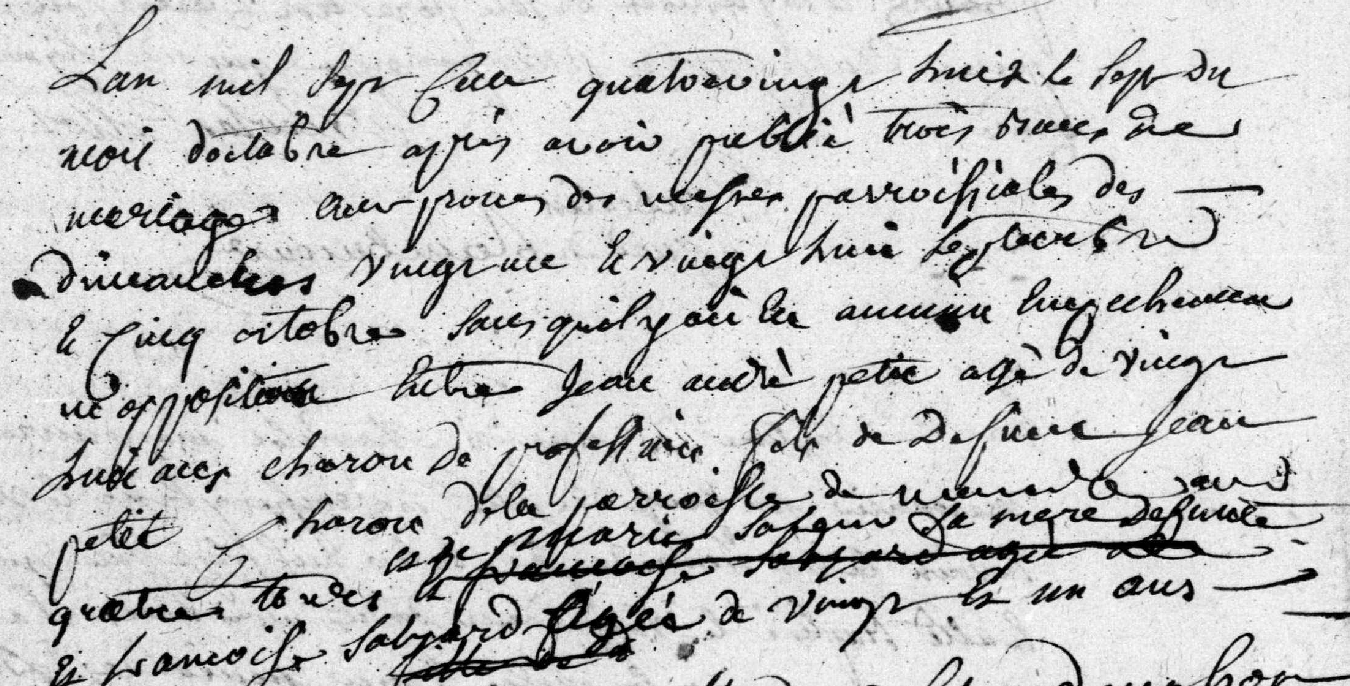 Lan mil sept cen quatrevingt huit le sept du
mois doctobre après avoir publiè trois bancs de
mariage aux prones des messes parroissiales des
dimanches vingt un et vingt huit septembre
et cinq octobre sans quil y ait eu aucun empechemen
ni opposition entre Jean andrè petit agè de vingt
huit ans charon de profession fils de defunt Jean
petit charon de la parroisse de
et de marie sa mere defunte
quatres tondes et francoise agèe de
et francoise sabyard agèe de vingt et un ans
fille de